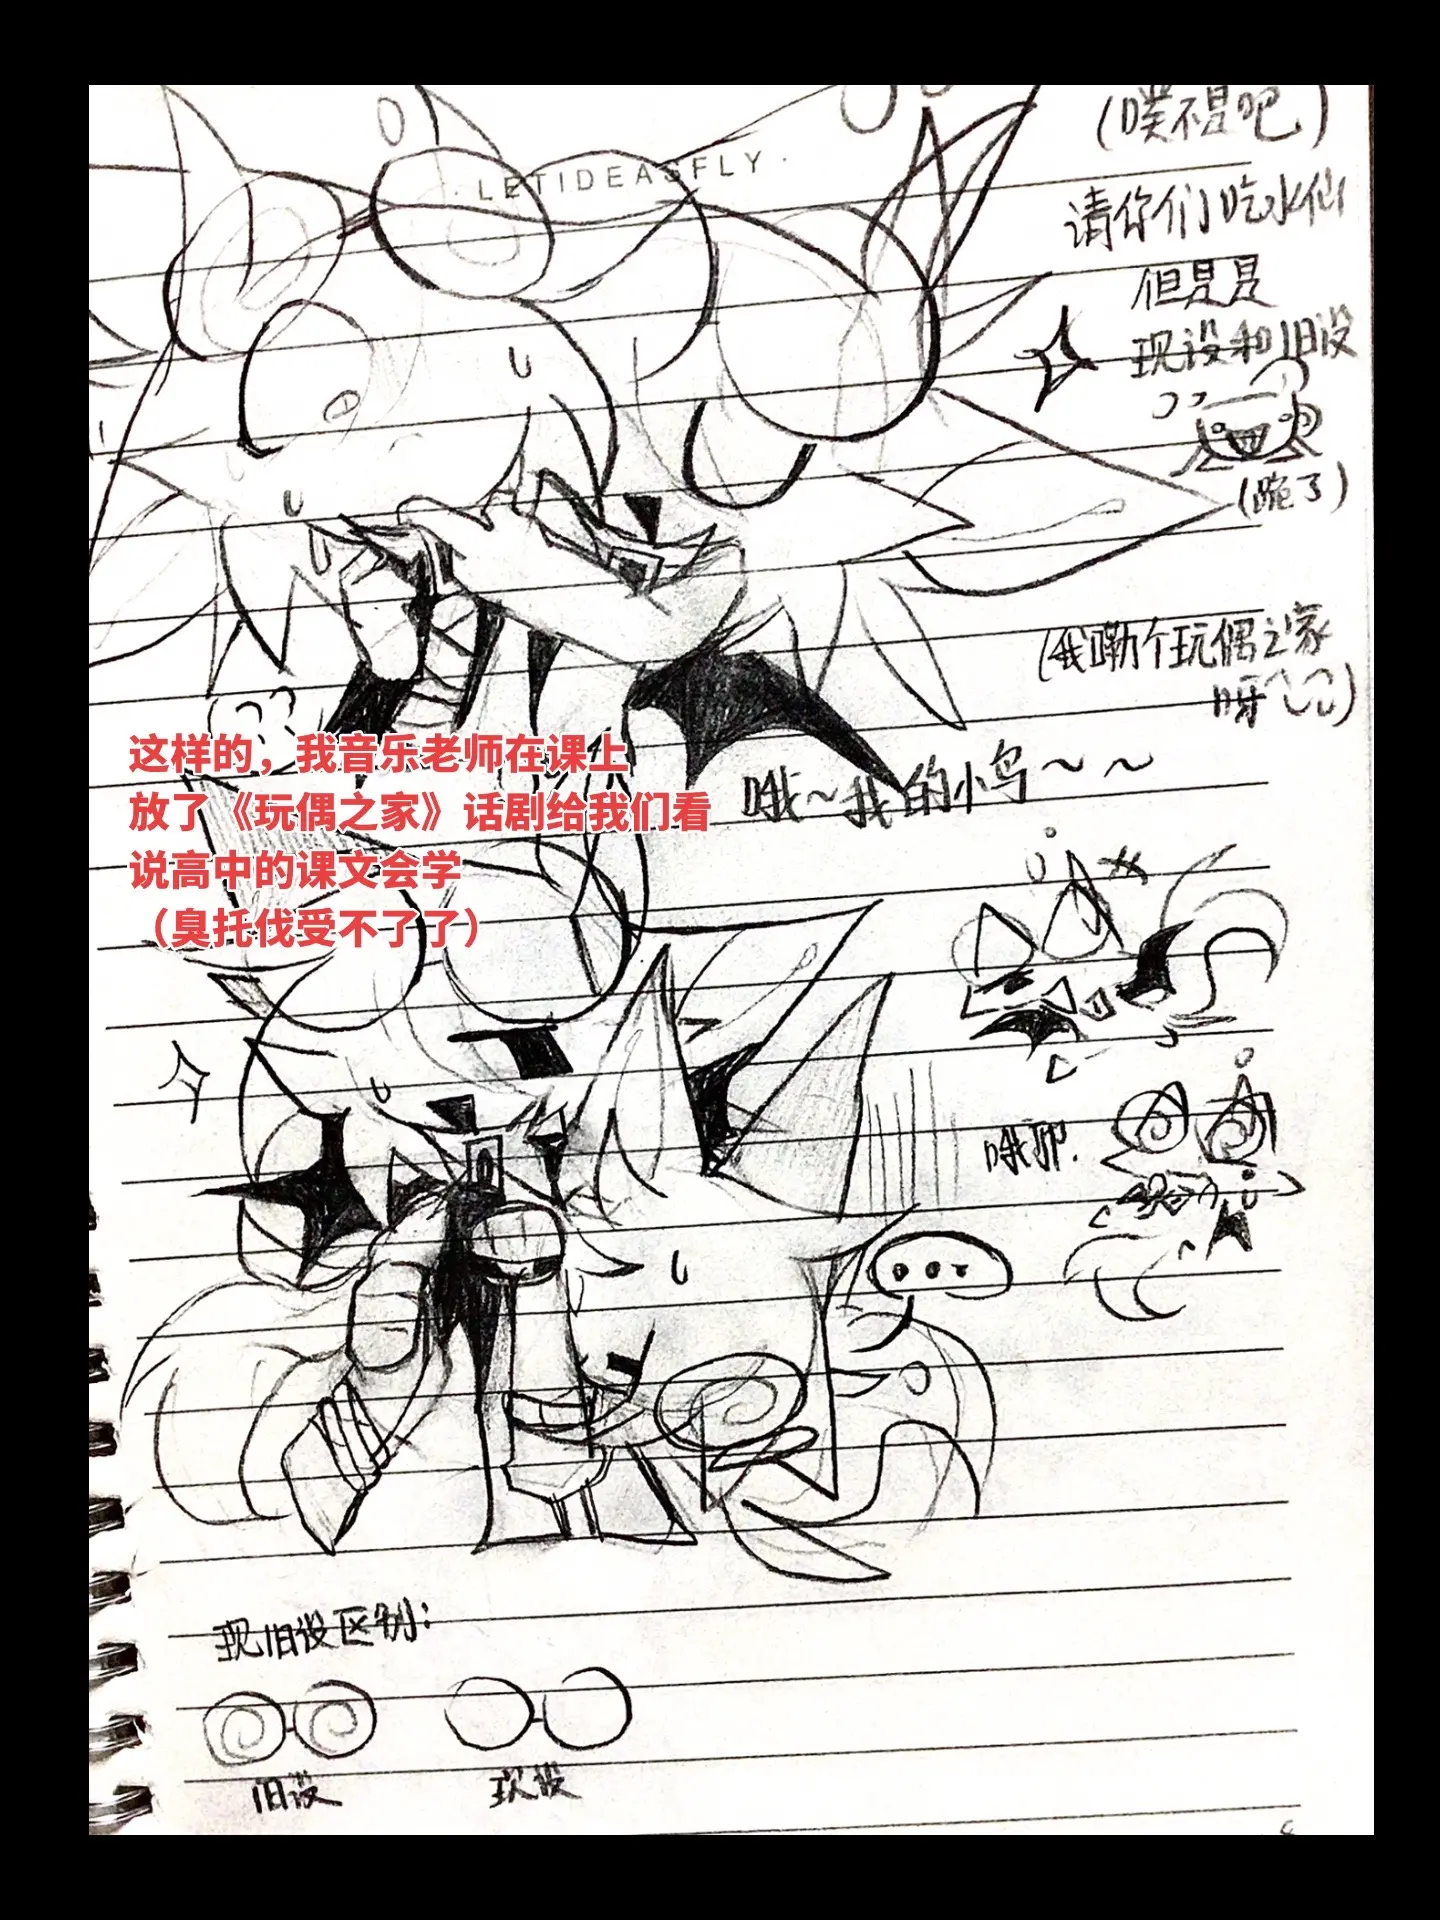 (噗不是吧)
· LETIDEASFLY ·
请你们吃水仙
但是是
现设和旧设
(跪了)
(我嘞个玩偶之家
呀
哦~我的小鸟~~
这样的，我音乐老师在课上
放了《玩偶之家》话剧给我们看
说高中的课文会学
（臭托伐受不了了）
现旧设区别：
旧设
现设